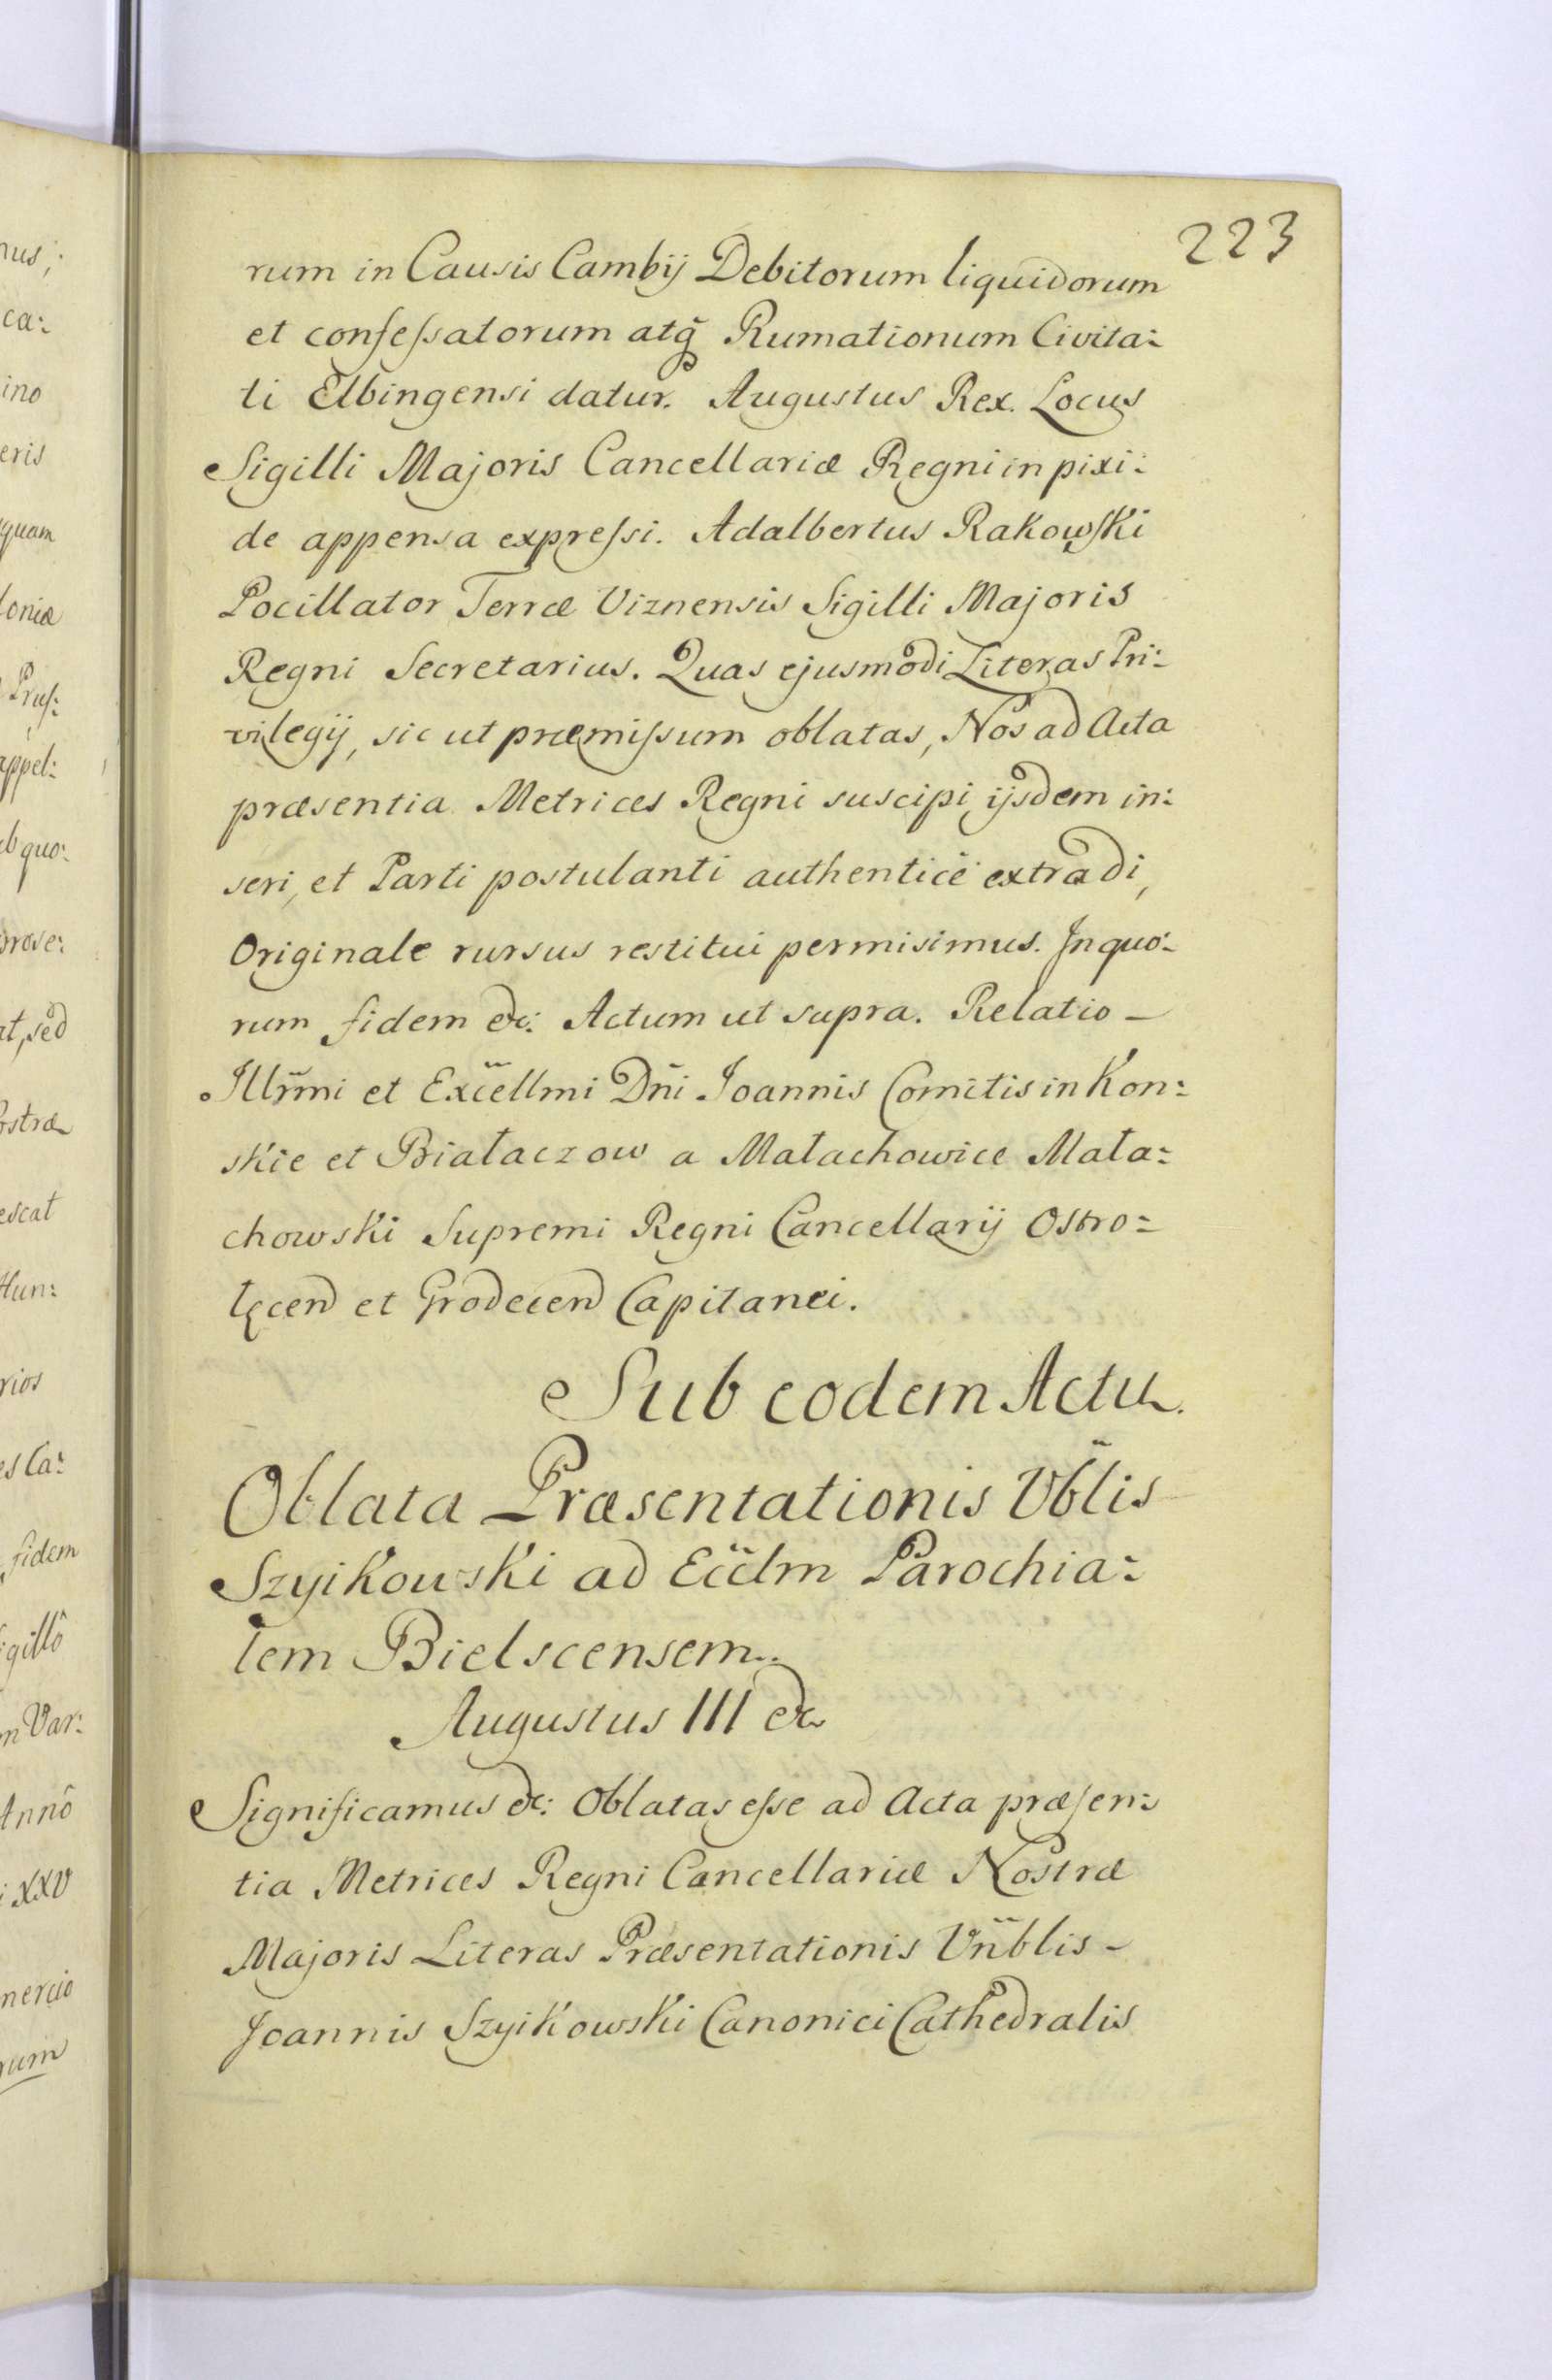 223
rum in Causis Cambij Debitorum liquidorum
et confeſsatorum atq̃ Rumationum Civita:
ti Elbingensi datur. Augustus Rex. Locus
Sigilli Majoris Cancellariæ Regni in pixi:
de appensa expreſsi. Adalbertus Rakowſki
Pocillator Terræ Viznensis Sigilli Majoris
Regni Secretarius. Quas ejusmodi Literas Pri:
vilegij, sic ut præmiſsum oblatas, Nos ad Acta
præsentia Metrices Regni suscipi, ijsdem in:
seri, et Parti postulanti authenticè extradi,
Originale rursus restitui permisimus. In quo:
rum fidem &c: Actum ut supra. Relatio –
Illr̃mi et Exc̃ellmi Dñi Joannis Comitis in Kon:
skie et Białaczow a Małachowice Mała:
chowski Supremi Regni Cancellarij Ostro:
łęcen et Grodecen Capitanei.
Sub eodem Actu.
Oblata Præsentationis Vb̃lis
Szyikowski ad Ecc̃lm Parochia:
lem Bielscensem.
Augustus III &c
Significamus &c: Oblatas eſse ad Acta præſen:
tia Metrices Regni Cancellariæ Nostræ
Majoris Literas Præsentationis Vñblis –
Joannis Szyikowski Canonici Cathedralis